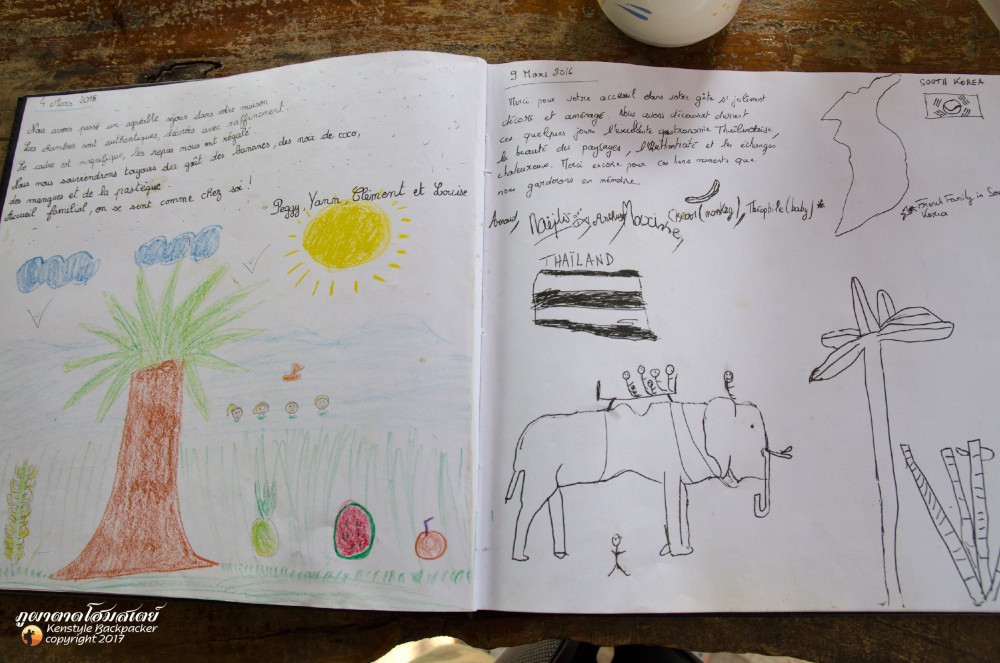 4 Mars 2016
Nous avons passé un agréable séjour dans votre maison
Les chambres sont authentiques, décorées avec raffinement.
Le cadre est magnifique, les repas nous ont régalé.
Nous nous souviendrons toujours du goût des bananes, des noix de coco,
des mangues et de la pastèque
Accueil familial, on se sent comme chez soi !
Peggy Yann Clément et Louise
9 Mars 2016
Merci pour votre accueil dans votre gîte si joliment
décoré et aménagé. Nous avons découvert durant
ces quelques jours l'excellente gastronomie Thaïlandaise,
la beauté des paysages, l'authenticité et les échanges
chaleureux. Merci encore pour ces bons moments que
nous garderons en mémoire.
Maxime, (monkey), Théophile (baby) *
SOUTH KOREA
* French Family in
Korea
THAÏLAND
ภูผาตาดโฮมสเตย์
Kenstyle Backpacker
copyright 2017